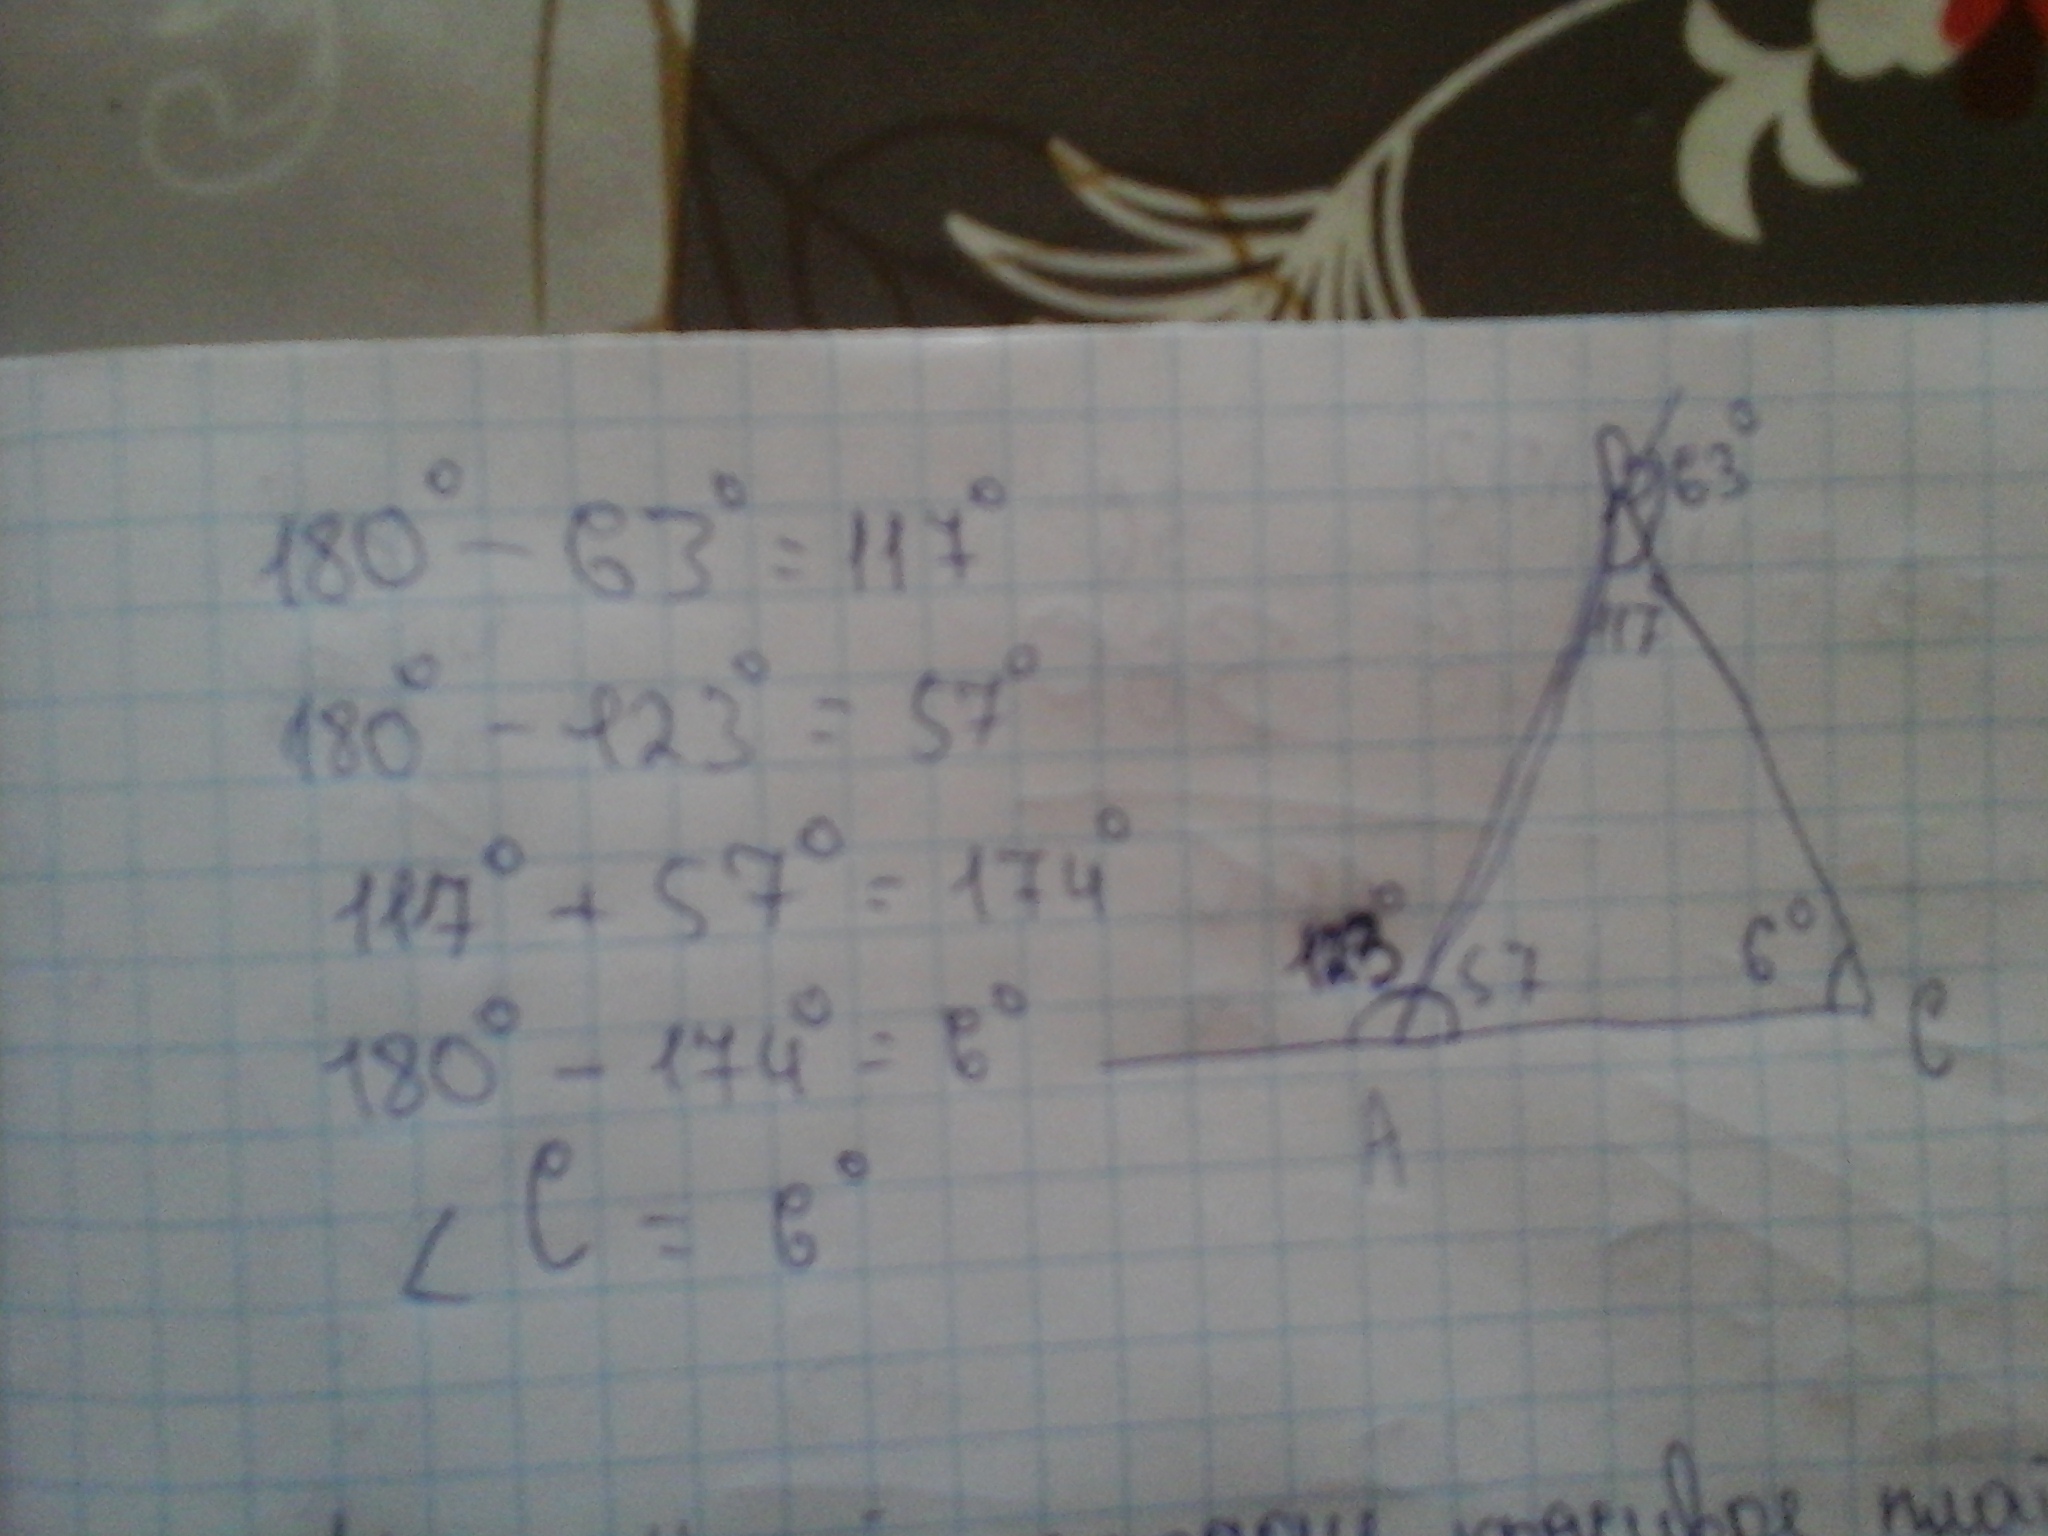 180° - 63° = 117°
180° - 123° = 57°
117° + 57° = 174°
180° - 174° = 6°
∠C = 6°
B 63°
117
123° 57 6°
A C
красивое